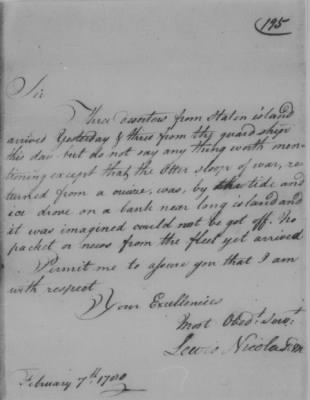 195
Sir
Three deserters from Staten island
arrived Yesterday & three from the guard ships
this day but do not say any thing worth men-
tioning except that the Otter sloop of war, re-
turned from a cruize, was, by the tide and
ice drove on a bank near long island and
it was imagined could not be got off. No
packet or news from the fleet yet arrived
Permit me to assure you that I am
with respect
Your Excellencies
most Obedt. Servt.
Lewis Nicola
February 7th. 1780